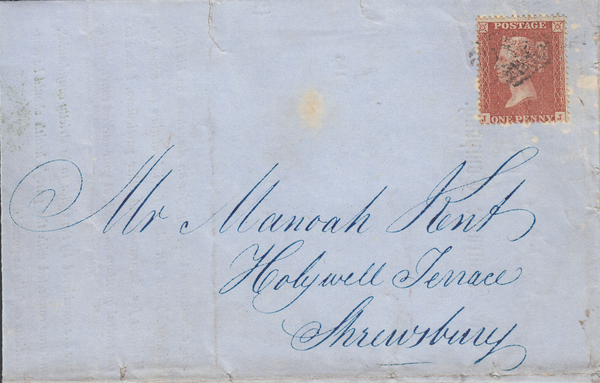 POSTAGE
J ONE PENNY J
Mr Manoah Kent
Holywell Terrace
Shrewsbury